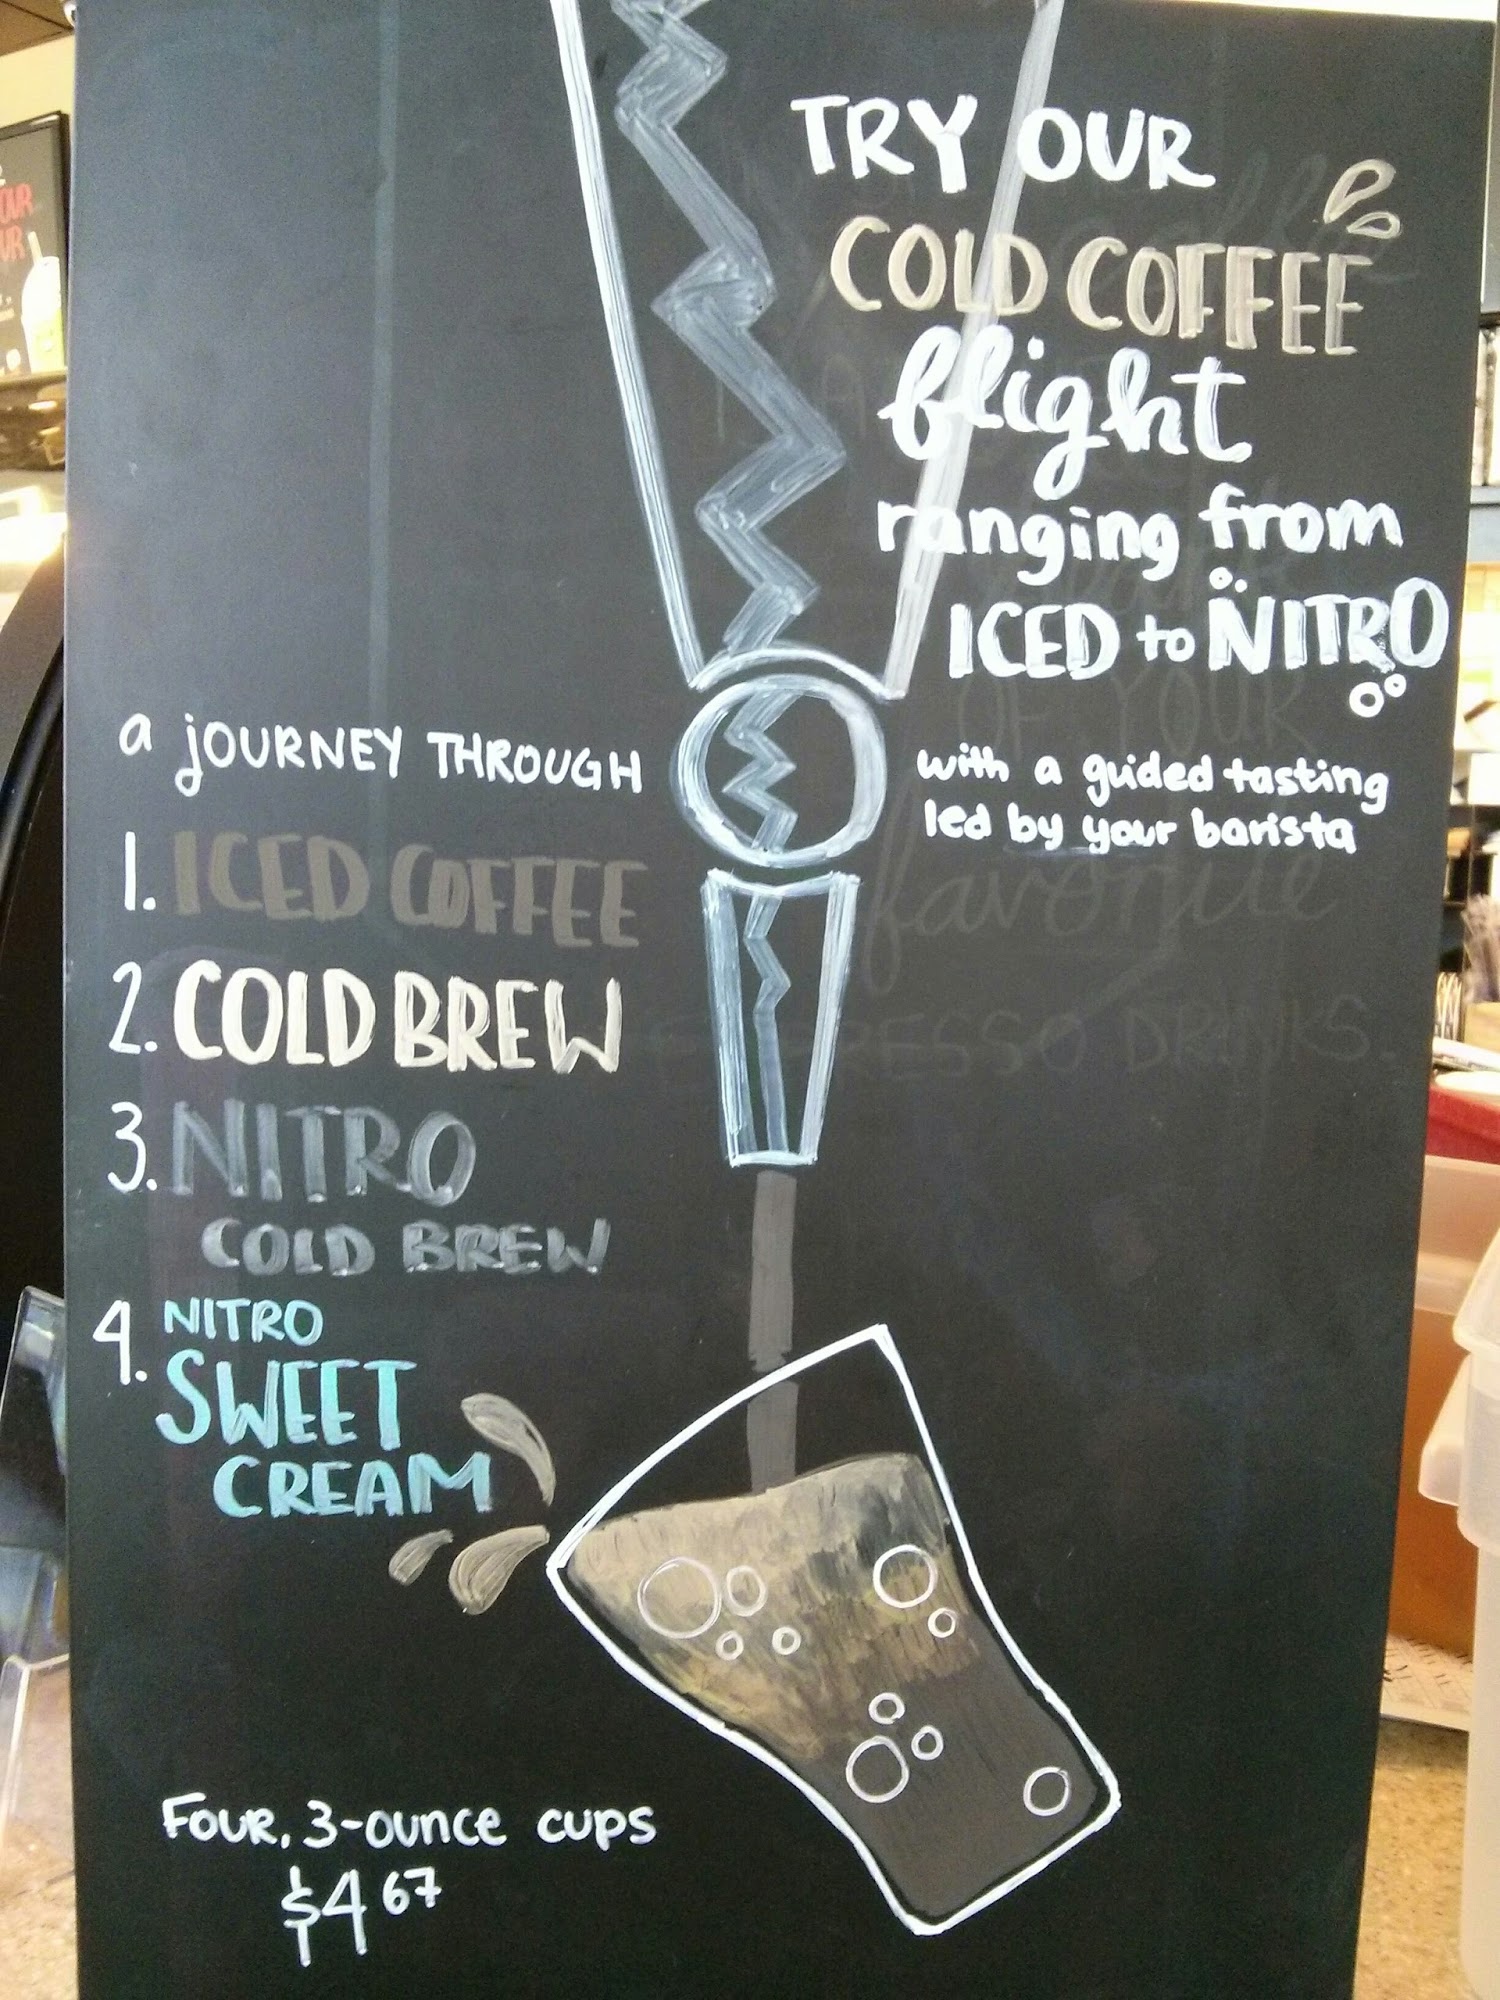 TRY OUR
COLD COFFEE
flight
ranging from
ICED to NITRO
with a guided tasting
led by your barista
a JOURNEY THROUGH
1. ICED COFFEE
2. COLD BREW
3. NITRO
COLD BREW
4. NITRO
SWEET
CREAM
FOUR, 3-ounce cups
$4 67
OF YOUR
favorite
ESPRESSO DRINKS.